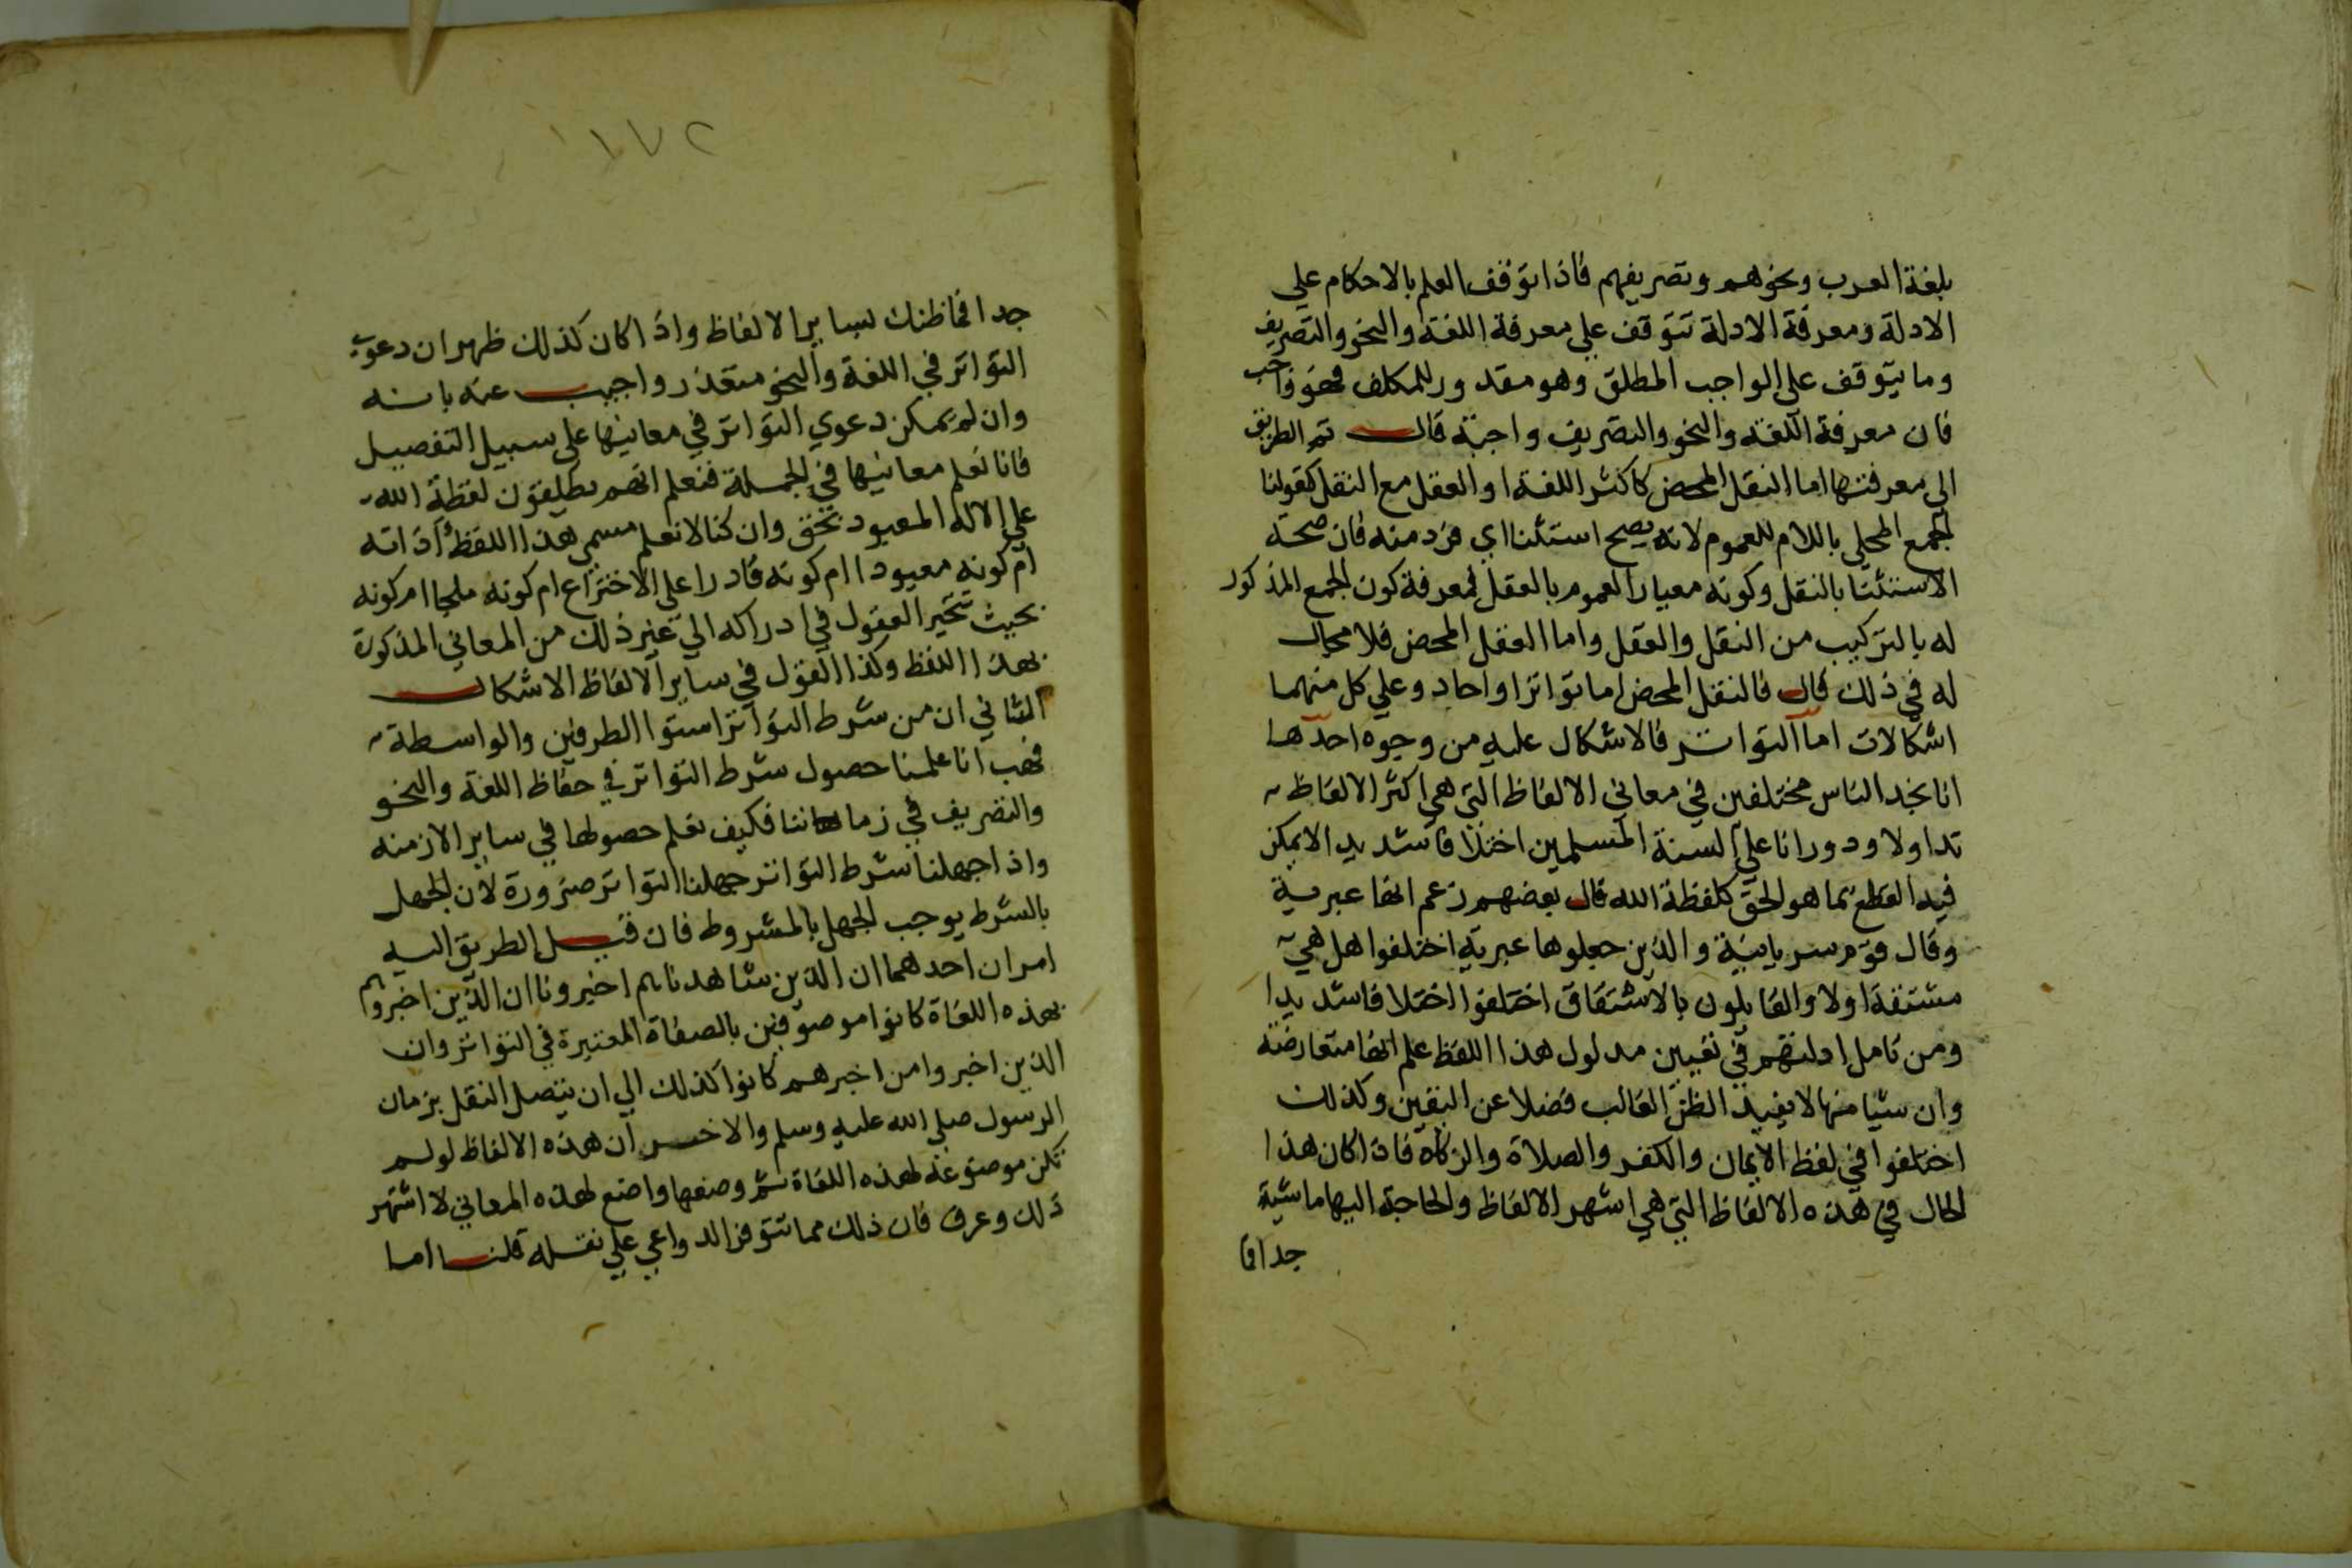 بلغة العرب ونحوهم وتصريفهم فاذا توقف العلم بالاحكام علي
الادلة ومعرفة الادلة تتوقف علي معرفة اللغة والنحو والتصريف
وما يتوقف علي الواجب المطلق وهو مقدور للمكلف فهو واجب
فان معرفة اللغة والنحو والتصريف واجبة قال ثم الطريق
الي معرفتها اما النقل المحض كاكثر اللغة او العقل مع النقل كقولنا
الجمع المحلي باللام للعموم لانه يصح استثنا اي فرد منه فان صحة
الاستثنا بالنقل وكونه معيار العموم بالعقل فمعرفة كون الجمع المذكور
له بالتركيب من النقل والعقل واما العقل المحض فلا مجال
له في ذلك قال فالنقل المحض اما تواترا او احاد وعلي كل منهما
اشكالات اما التواتر فالاشكال عليه من وجوه احدها
انا نجد الناس مختلفين في معاني الالفاظ التي هي اكثر الالفاظ
تداولا ودورانا علي السنة المسلمين اختلافا شديدا لا يمكن
فيه القطع بما هو الحق كلفظة الله قال بعضهم زعم انها عبرية
وقال قوم سريانية والذين جعلوها عبرية اختلفوا هل هي
مشتقة اولا والقايلون بالاشتقاق اختلفوا اختلافا شديدا
ومن تامل ادلتهم في تعيين مدلول هذا اللفظ علم انها متعارضة
وان شيا منها لا يفيد الظن الغالب فضلا عن اليقين وكذلك
اختلفوا في لفظ الايمان والكفر والصلاة والزكاة فاذا كان هذا
الحال في هذه الالفاظ التي هي اشهر الالفاظ والحاجة اليها ماسية
جدا فما
١١٧٢
جدا فما ظنك بساير الالفاظ واذا كان كذلك ظهر ان دعوي
التواتر في اللغة والنحو متعذر واجيب عنه بانه
وان لم يمكن دعوي التواتر في معانيها علي سبيل التفصيل
فانا نعلم معانيها في الجملة فنعلم انهم يطلقون لفظة الله
علي الاله المعبود بحق وان كنا لا نعلم مسمي هذا اللفظ أذاته
ام كونه معبودا ام كونه قادرا علي الاختراع ام كونه ملجا ام كونه
بحيث تتحير العقول في ادراكه الي غير ذلك من المعاني المذكورة
بهذا اللفظ وكذا القول في ساير الالفاظ الاشكال
الثاني ان من شرط التواتر استوا الطرفين والواسطة
فهب انا علمنا حصول شرط التواتر في حفاظ اللغة والنحو
والتصريف في زماننا فكيف نعلم حصولها في ساير الازمنه
واذا جهلنا شرط التواتر جهلنا التواتر ضرورة لان الجهل
بالشرط يوجب الجهل بالمشروط فان قيل الطريق اليه
امران احدهما ان الذين شاهدناهم اخبرونا ان الذين اخبروهم
بهذه اللغاة كانوا موصوفين بالصفاة المعتبرة في التواتر وان
الذين اخبروا من اخبرهم كانوا كذلك الي ان يتصل النقل بزمان
الرسول صلي الله عليه وسلم والاخر ان هذه الالفاظ لو لم
تكن موضوعة لهذه اللغاة ثم وضعها واضع لهذه المعاني لاشتهر
ذلك وعرف فان ذلك مما تتوفر الدواعي علي نقله قلنا اما